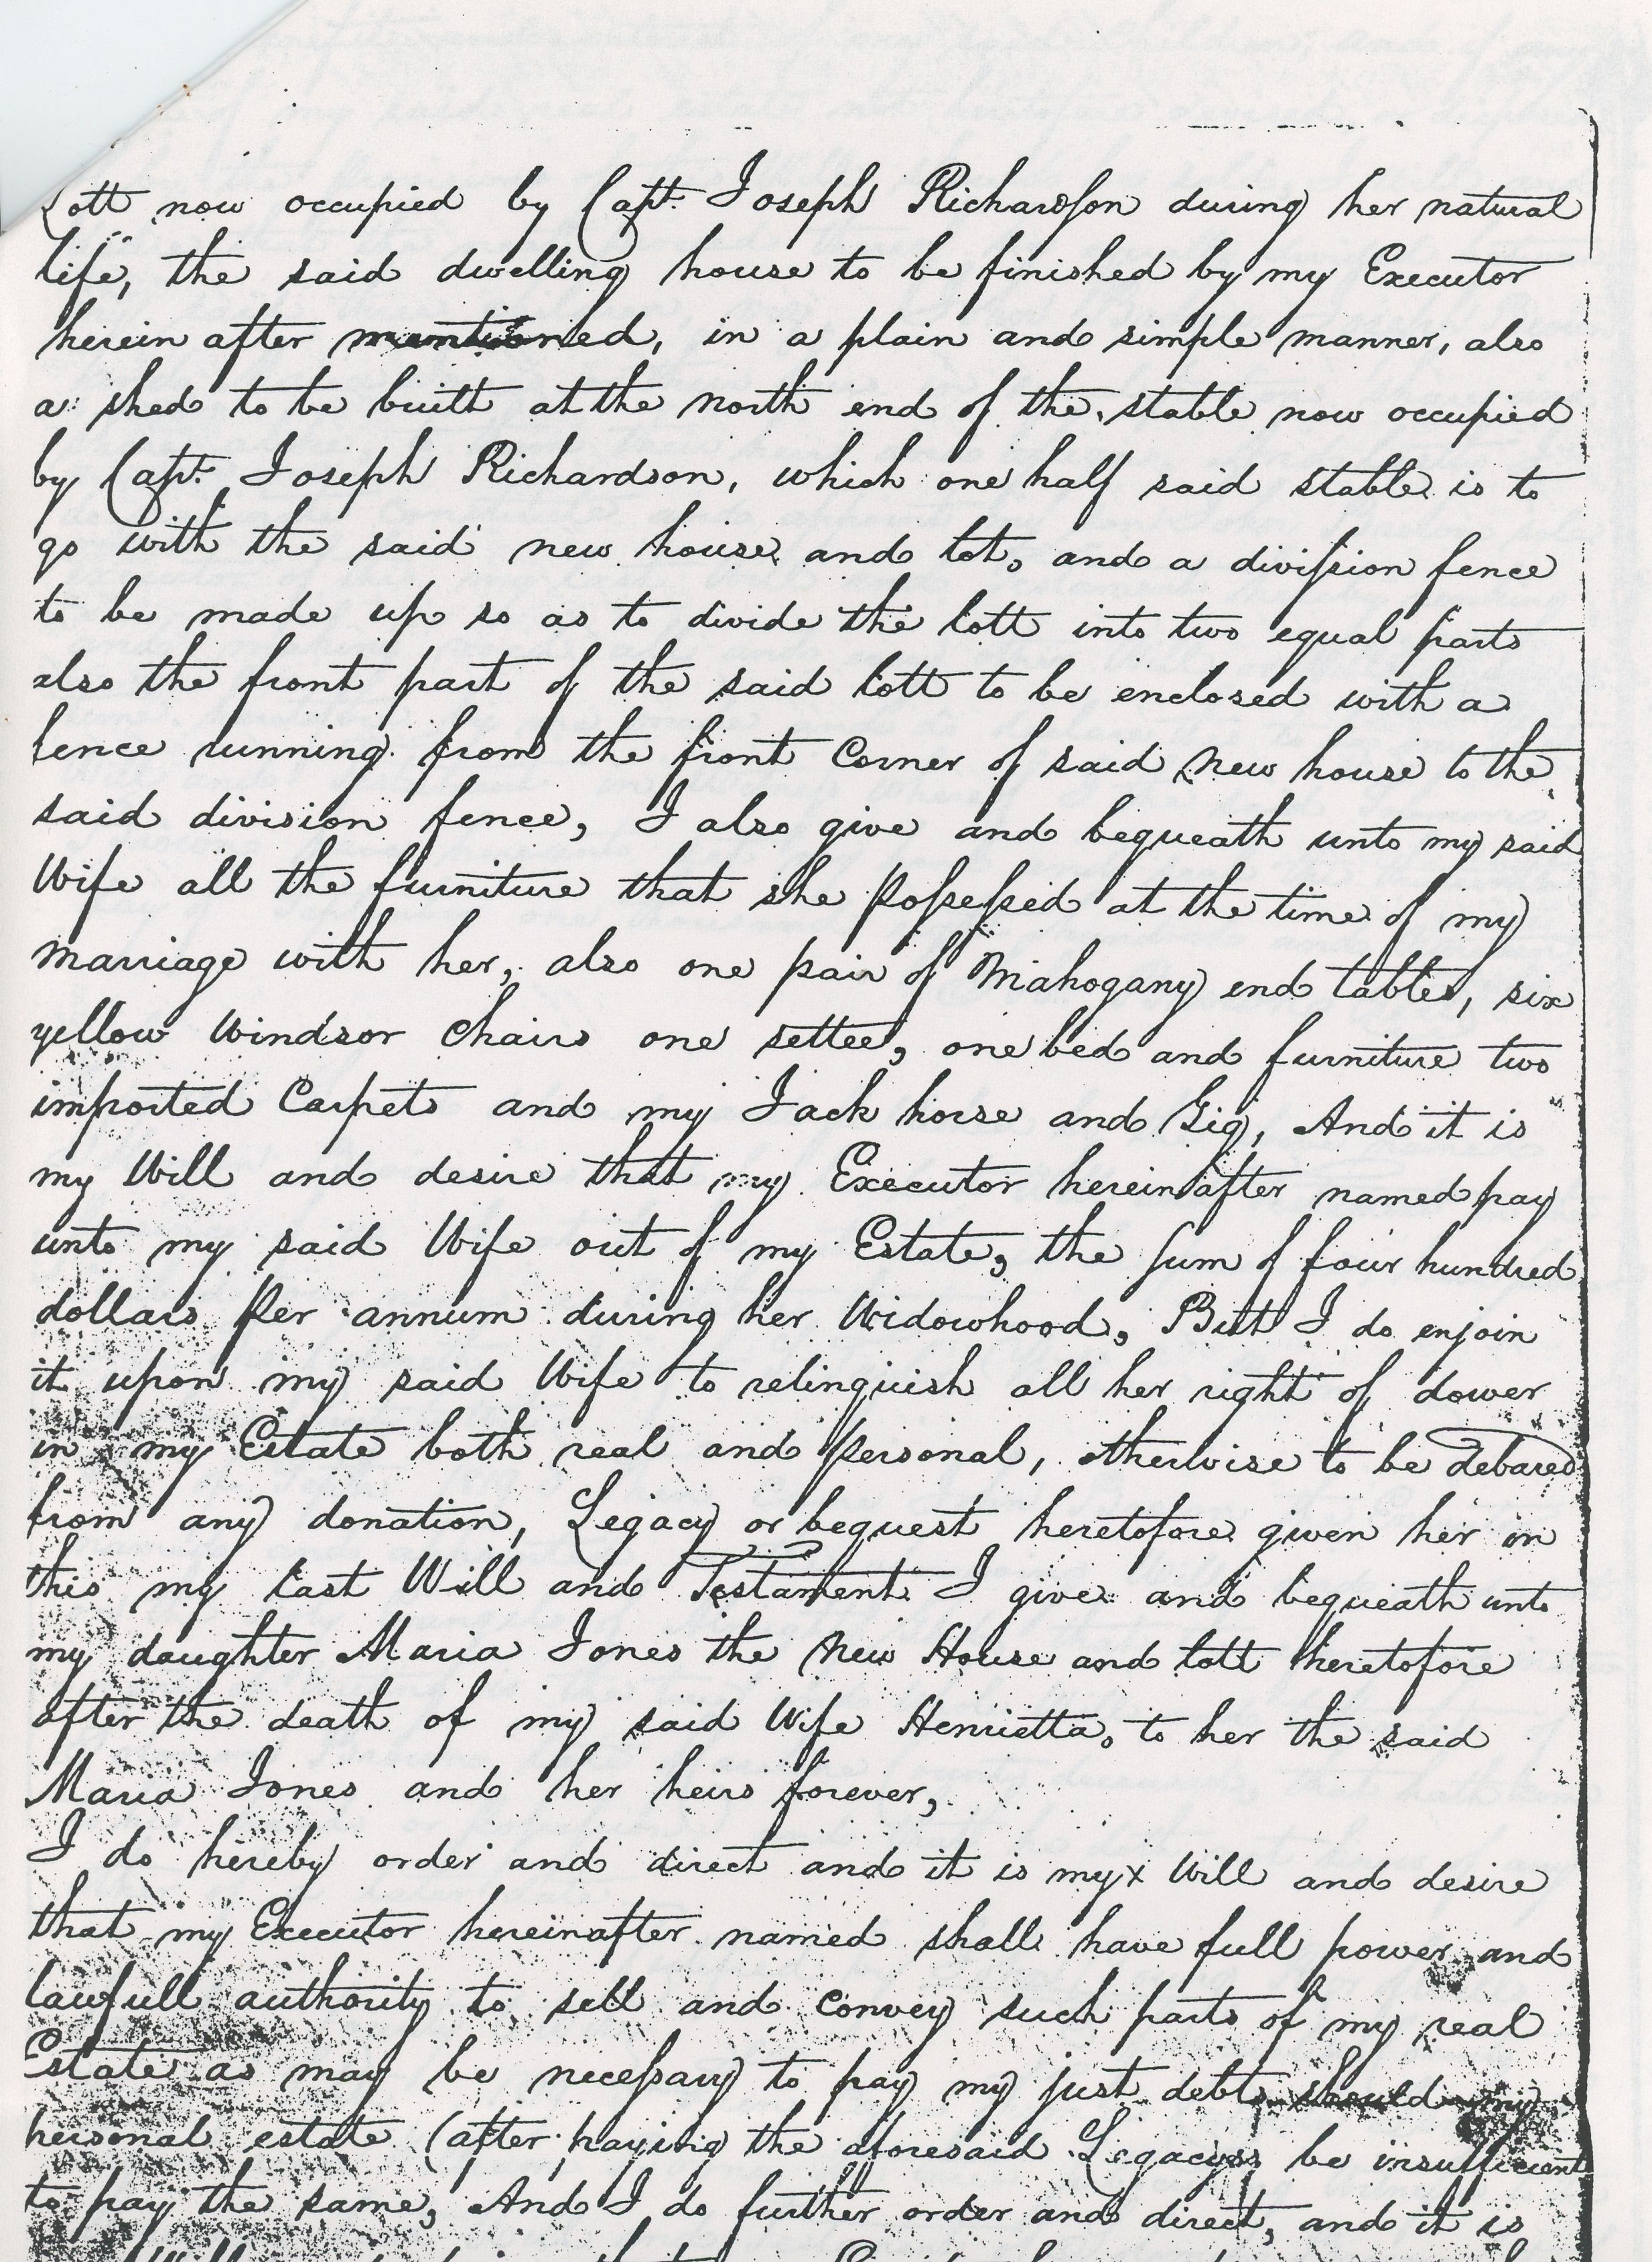 Lott now occupied by Capt. Joseph Richardson during her natural
life, the said dwelling house to be finished by my Executor
herein after mentioned, in a plain and simple manner, also
a shed to be built at the north end of the stable now occupied
by Capt. Joseph Richardson, which one half said stable is to
go with the said new house and lot, and a division fence
to be made up so as to divide the lott into two equal parts
also the front part of the said lott to be enclosed with a
fence running from the front Corner of said New house to the
said division fence, I also give and bequeath unto my said
Wife all the furniture that she possessed at the time of my
marriage with her, also one pair of Mahogany end tables, six
yellow Windsor Chairs one settee, one bed and furniture two
imported Carpets and my Jack horse and Gig, And it is
my Will and desire that my Executor hereinafter named pay
unto my said Wife out of my Estate, the sum of four hundred
dollars per annum during her Widowhood, But I do enjoin
it upon my said Wife to relinquish all her right of dower
in my Estate both real and personal, otherwise to be debared
from any donation, Legacy or bequest heretofore given her in
this my last Will and Testament I give and bequeath unto
my daughter Maria Jones the New House and lott heretofore
after the death of my said Wife Henrietta, to her the said
Maria Jones and her heirs forever,
I do hereby order and direct and it is my x Will and desire
that my Executor hereinafter named shall have full power and
lawfull authority to sell and convey such parts of my real
Estate as may be necessary to pay my just debts should my
personal estate (after paying the aforesaid Legacyss be insufficient
to pay the same, And I do further order and direct, and it is